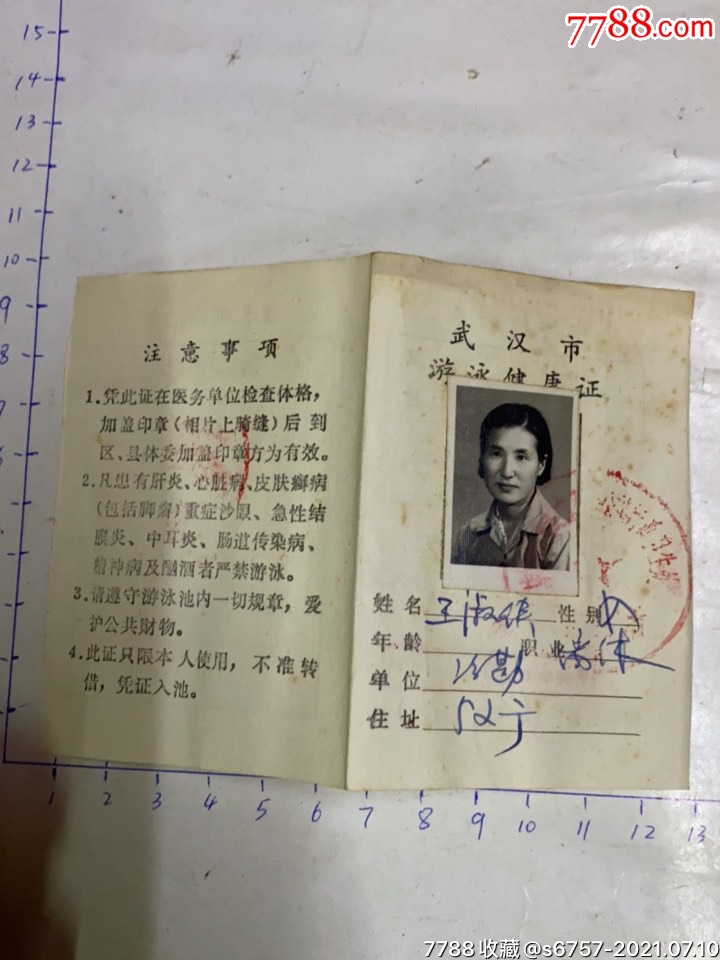 7788.com
15
14
13
12
11
10
9
8
7
6
注意事项
1.凭此证在医务单位检查体格，
加盖印章（相片上骑缝）后到
区、县体委加盖印章方为有效。
2.凡患有肝炎、心脏病、皮肤癣病
（包括脚癣）重症沙眼、急性结
膜炎、中耳炎、肠道传染病、
精神病及酗酒者严禁游泳。
3.请遵守游泳池内一切规章，爱
护公共财物。
4.此证只限本人使用，不准转
借，凭证入池。
武汉市
游泳健康证
姓名 王淑 性别 女
年龄 职业 退休
单位
住址
1 2 3 4 5 6 7 8 9 10 11 12 13
7788收藏@s6757-2021.07.10